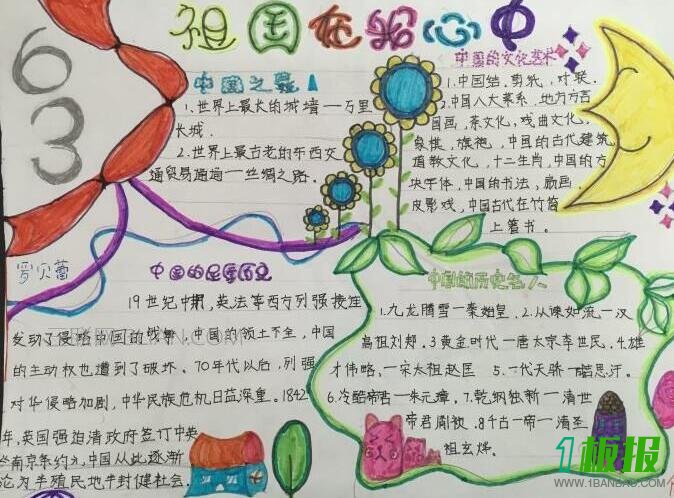 祖国在我心中
63
中国之最
1.世界上最长的城墙——万里
长城.
2.世界上最古老的东西交
通贸易通道—丝绸之路.
中国的文化艺术
1.中国结.剪纸,对联.
2.中国八大菜系,地方方言
国画,茶文化,戏曲文化,
象棋,旗袍,中国的古代建筑
道教文化,十二生肖,中国的方
块字体,中国的书法,版画,
皮影戏,中国古代在竹简
上著书.
罗贝蕾
中国的屈辱历史
19世纪中期,英法等西方列强接连
发动了侵略中国的战争,中国的领土不全,中国
的主动权也遭到了破坏.70年代以后,列强
对华侵略加剧,中华民族危机日益深重.1842
年,英国强迫清政府签订中英
南京条约,中国从此逐渐
沦为半殖民地半封健社会.
中国的历史名人
1.九龙腾雪一秦始皇,2.从谏如流一汉
高祖刘邦.3黄金时代一唐太宗李世民.4.雄
才伟略,一宋太祖赵匡 5.一代天骄一
6.冷酷帝君一朱元璋.7.乾纲独断一清世
帝君 8千古一帝一清圣
祖玄烨.
1板报
WWW.1BANBAO.COM